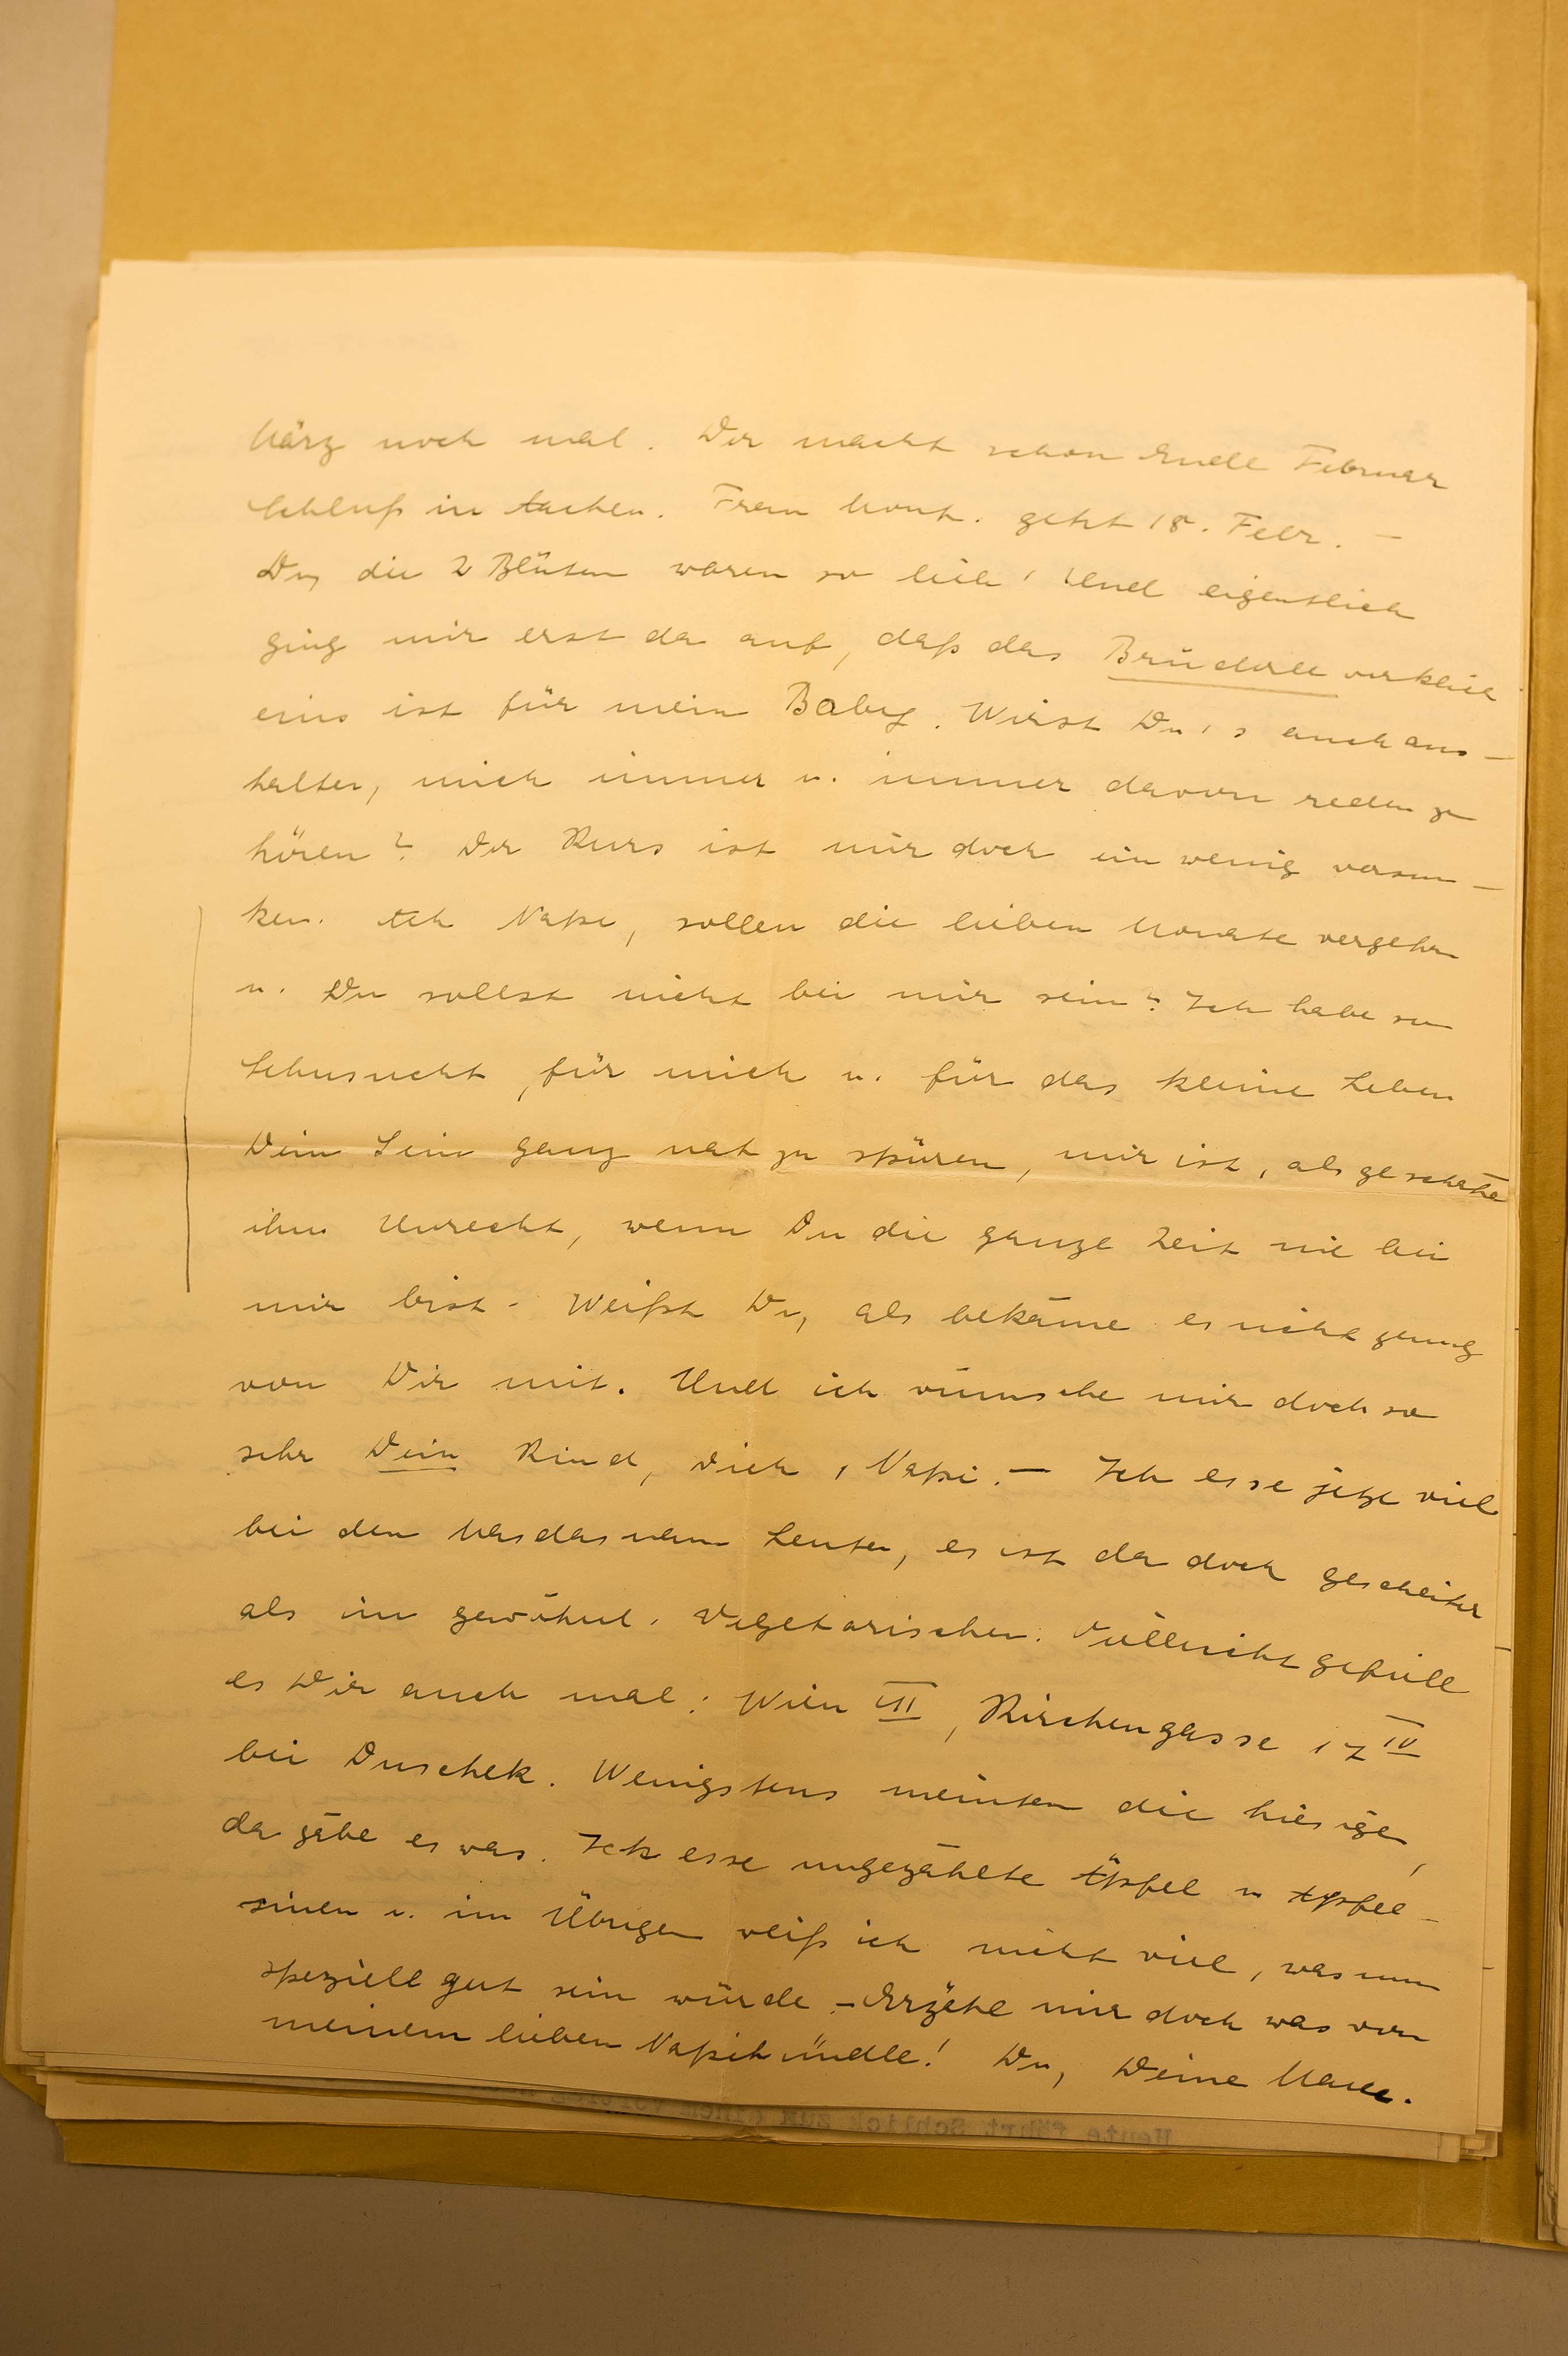 März noch mal. Der macht schon Ende Februar
Schluß in Aachen. Frau Mont. geht 18. Febr. –
Du, die 2 Blüten waren so lieb! Und eigentlich
ging mir erst da auf, daß das Brüderle wirklich
eins ist für mein Baby. Wirst Du's auch aus-
halten, mich immer u. immer davon reden zu
hören? Der Kurs ist mir doch ein wenig versun-
ken. Ach Napi, sollen die lieben Monate vergehn
u. Du sollst nicht bei mir sein? Ich habe so
Sehnsucht, für mich u. für das kleine Leben
Dein Sein ganz nah zu spüren, mir ist, als geschähe
ihm Unrecht, wenn Du die ganze Zeit nie bei
mir bist. Weißt Du, als bekäme es nicht genug
von Dir mit. Und ich wünsche mir doch so
sehr Dein Kind, Dich, Napi. – Ich esse jetzt viel
bei den Masdasnan Leuten, es ist da doch gescheiter
als im gewöhnl. Vegetarischen. Vielleicht gefiele
es Dir auch mal: Wien III, Kirchengasse 17 IV
bei Duschek. Wenigstens meinten die hiesigen,
da gäbe es was. Ich esse ungezählte Äpfel u Apfel-
sinen u. im Übrigen weiß ich nicht viel, was nun
speziell gut sein würde. – Erzähl mir doch was von
meinem lieben Napihündle! Du, Deine
Heute fährt Schlick zum einen